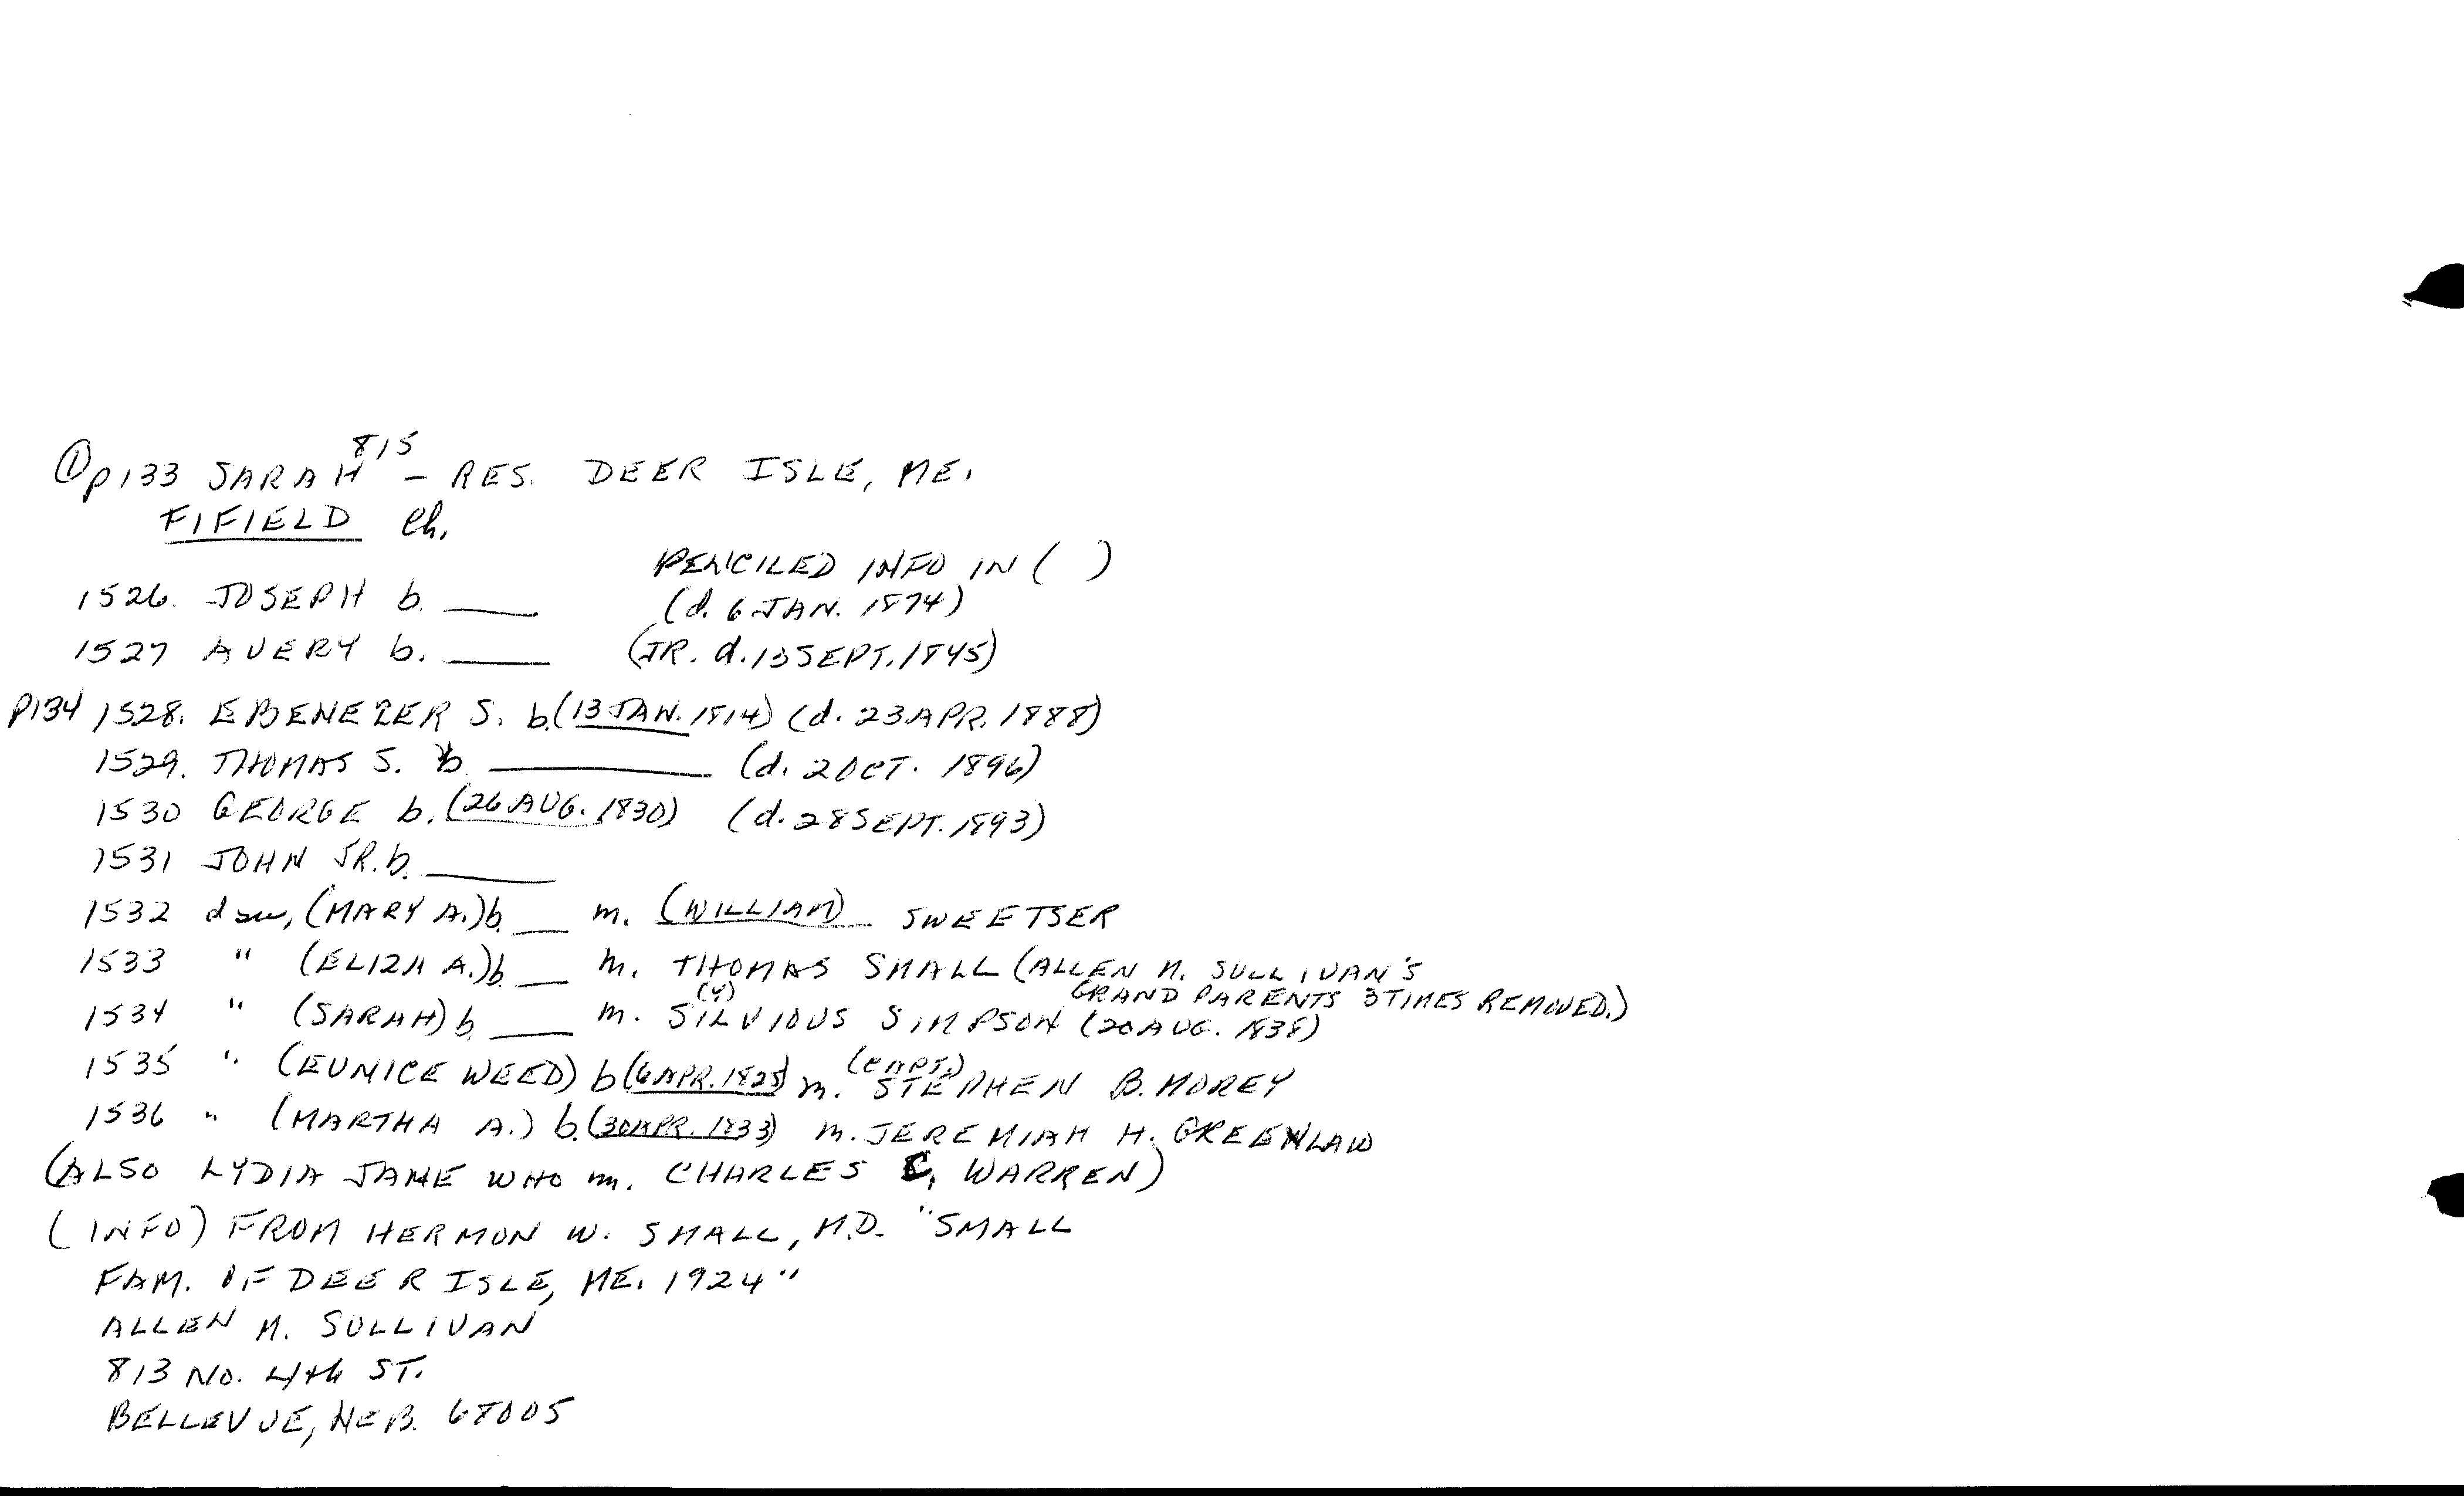 ① P133 SARAH 815 – RES. DEER ISLE, ME.
FIFIELD Ch.
PENCILED INFO IN ( )
1526. JOSEPH b. ____ (d. 6 JAN. 1874)
1527 AVERY b. ____ (JR. d. 13 SEPT. 1845)
P134 1528. EBENEZER S. b. (13 JAN. 1814) (d. 23 APR. 1888)
1529. THOMAS S. b ____ (d. 2 OCT. 1896)
1530 GEORGE b. (26 AUG. 1830) (d. 28 SEPT. 1893)
1531 JOHN JR. b. ____
1532 dau, (MARY A.) b. __ m. (WILLIAM) SWEETSER
1533 " (ELIZA A.) b. __ m. THOMAS SMALL (ALLEN M. SULLIVAN'S
GRAND PARENTS 3 TIMES REMOVED.)
(Y)
1534 " (SARAH) b. __ m. SILVIOUS SIMPSON (20 AUG. 1838)
1535 " (EUNICE WEED) b (6 APR. 1825) m. (CAPT.) STEPHEN B. MOREY
1536 " (MARTHA A.) b. (30 APR. 1833) m. JEREMIAH H. GREENLAW
(ALSO LYDIA JANE WHO m. CHARLES C. WARREN)
(INFO) FROM HERMON W. SMALL, M.D. "SMALL
FAM. OF DEER ISLE, ME. 1924"
ALLEN M. SULLIVAN
813 NO. 4th ST.
BELLEVUE, NEB. 68005